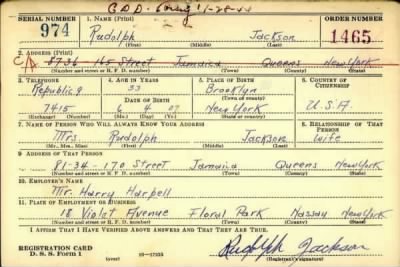 SERIAL NUMBER 1. NAME (Print) ORDER NUMBER
974 Rudolph Jackson 1465
(First) (Middle) (Last)
2. ADDRESS (Print)
165 Street Jamaica Queens New York
(Number and street or R. F. D. number) (Town) (County) (State)
3. TELEPHONE 4. AGE IN YEARS 5. PLACE OF BIRTH 6. COUNTRY OF CITIZENSHIP
Republic 9 33 Brooklyn
DATE OF BIRTH (Town or county)
7415 6 4 07 New York U.S.A.
(Exchange) (Number) (Mo.) (Day) (Yr.) (State or country)
7. NAME OF PERSON WHO WILL ALWAYS KNOW YOUR ADDRESS 8. RELATIONSHIP OF THAT PERSON
Mrs. Rudolph Jackson Wife
(Mr., Mrs., Miss) (First) (Middle) (Last)
9. ADDRESS OF THAT PERSON
81-34-170 Street Jamaica Queens New York
(Number and street or R. F. D. number) (Town) (County) (State)
10. EMPLOYER'S NAME
Mr. Harry Harpell
11. PLACE OF EMPLOYMENT OR BUSINESS
18 Violet Avenue Floral Park Nassau New York
(Number and street or R. F. D. number) (Town) (County) (State)
I AFFIRM THAT I HAVE VERIFIED ABOVE ANSWERS AND THAT THEY ARE TRUE.
REGISTRATION CARD
D. S. S. Form 1 16—17105 Rudolph Jackson
(Registrant's signature)